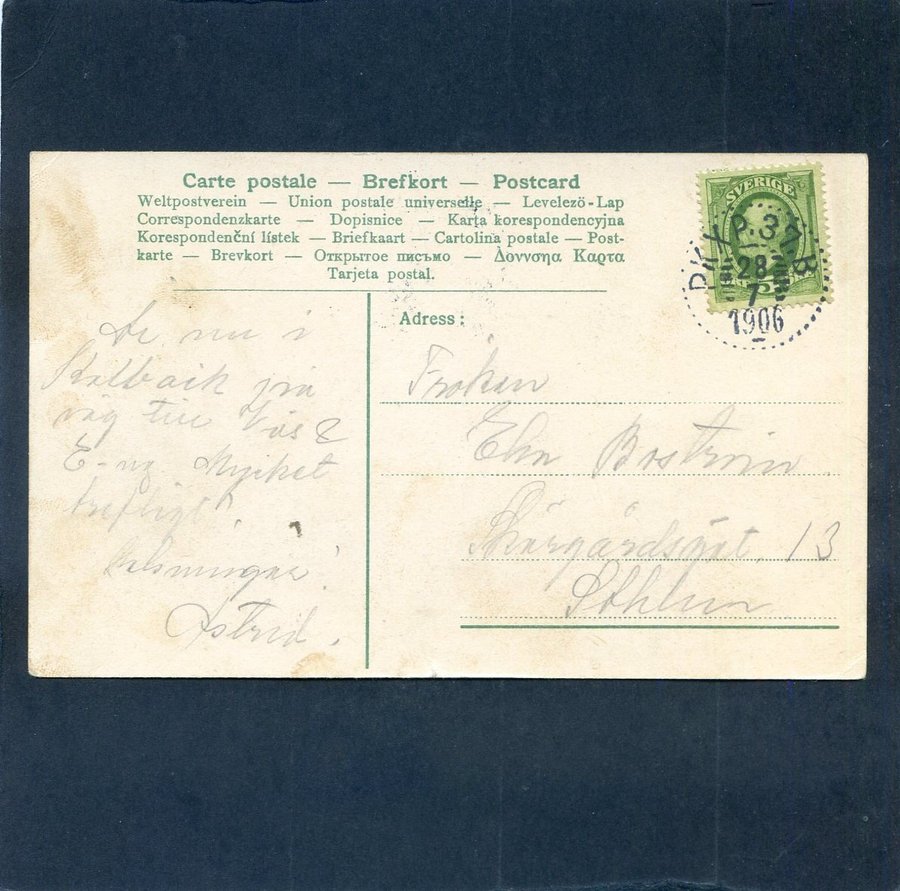 Carte postale — Brefkort — Postcard
Weltpostverein — Union postale universelle — Levelező-Lap
Correspondenzkarte — Dopisnice — Karta korespondencyjna
Korespondenční lístek — Briefkaart — Cartolina postale — Post-
karte — Brevkort — Открытое письмо — Δοννσηα Καρτα
Tarjeta postal.
SVERIGE
28
7
1906
Adress:
Är nu i
på
väg till
Mycket
trefligt!
Helsningar!
Astrid.
Fröken
Elin Boström
Skärgårdsgat. 13
Sthlm